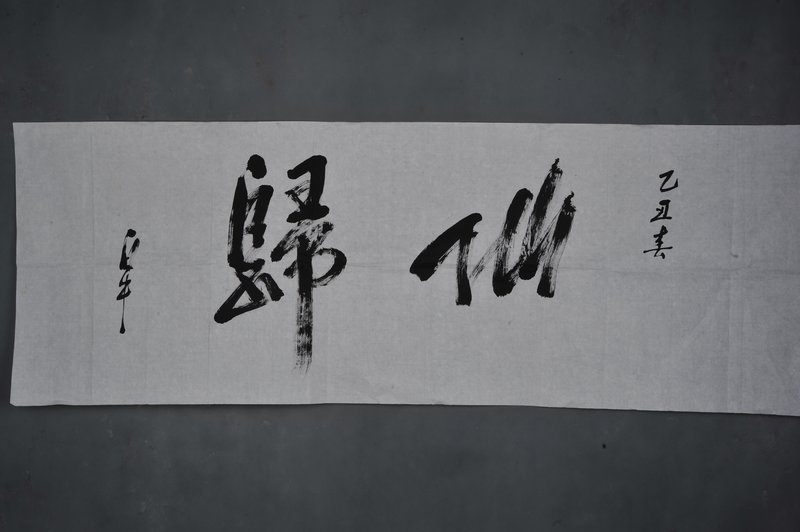 乙丑春
仙歸